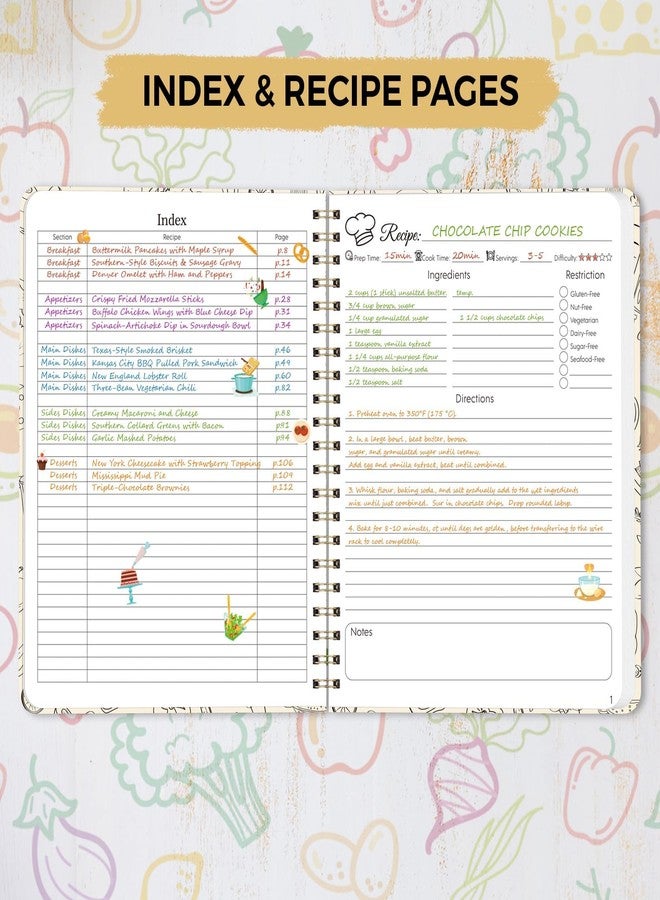 INDEX & RECIPE PAGES
Index
Section Recipe Page
Breakfast Buttermilk Pancakes with Maple Syrup p.8
Breakfast Southern-Style Biscuits & Sausage Gravy p.11
Breakfast Denver Omelet with Ham and Peppers p.14
Appetizers Crispy Fried Mozzarella Sticks p.28
Appetizers Buffalo Chicken Wings with Blue Cheese Dip p.31
Appetizers Spinach-Artichoke Dip in Sourdough Bowl p.34
Main Dishes Texas-Style Smoked Brisket p.46
Main Dishes Kansas City BBQ Pulled Pork Sandwich p.49
Main Dishes New England Lobster Roll p.60
Main Dishes Three-Bean Vegetarian Chili p.82
Sides Dishes Creamy Macaroni and Cheese p.88
Sides Dishes Southern Collard Greens with Bacon p91
Sides Dishes Garlic Mashed Potatoes p94
Desserts New York Cheesecake with Strawberry Topping p.106
Desserts Mississippi Mud Pie p.109
Desserts Triple-Chocolate Brownies p.112
Recipe: CHOCOLATE CHIP COOKIES
Prep Time: 15min Cook Time: 20min Servings: 3-5 Difficulty:
Ingredients
2 cups (1 stick) unsalted butter, temp.
3/4 cup brown sugar
1/4 cup granulated sugar 1 1/2 cups chocolate chips
1 large egg
1 teaspoon vanilla extract
1 1/4 cups all-purpose flour
1/2 teaspoon baking soda
1/2 teaspoon salt
Restriction
Gluten-Free
Nut-Free
Vegetarian
Dairy-Free
Sugar-Free
Seafood-Free
Directions
1. Preheat oven to 350°F (175 °C).
2. In a large bowl, beat butter, brown
sugar, and granulated sugar until creamy.
Add egg and vanilla extract, beat until combined.
3. Whisk flour, baking soda, and salt gradually add to the wet ingredients
mix until just combined. Sur in chocolate chips. Drop rounded
4. Bake for 8-10 minutes, are golden, before transferring to the wire
rack to cool completely.
Notes
1